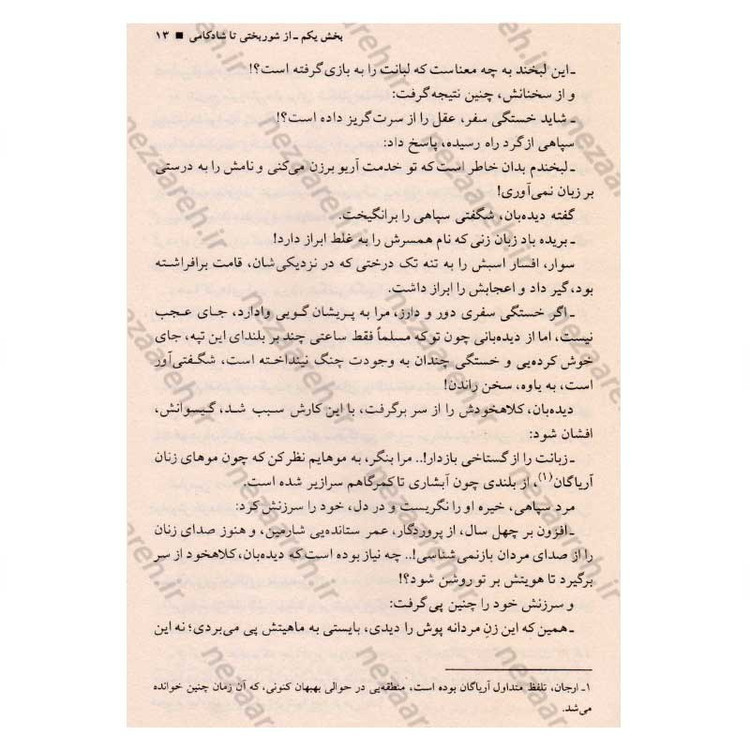 بخش یکم ـ از شوربختی تا شادکامی ■ ۱۳
ـ این لبخند به چه معناست که لبانت را به بازی گرفته است؟!
و از سخنانش، چنین نتیجه گرفت:
ـ شاید خستگی سفر، عقل را از سرت گریز داده است؟!
سپاهی از گرد راه رسیده، پاسخ داد:
ـ لبخندم بدان خاطر است که تو خدمت آریو برزن می‌کنی و نامش را به درستی
بر زبان نمی‌آوری!
گفته دیده‌بان، شگفتی سپاهی را برانگیخت.
ـ بریده باد زبان زنی که نام همسرش را به غلط ابراز دارد!
سوار، افسار اسبش را به تنه تک درختی که در نزدیکی‌شان، قامت برافراشته
بود، گیر داد و اعجابش را ابراز داشت.
ـ اگر خستگی سفری دور و دارز، مرا به پریشان گویی وادارد، جای عجب
نیست، اما از دیده‌بانی چون تو که مسلماً فقط ساعتی چند بر بلندای این تپه، جای
خوش کرده‌یی و خستگی چندان به وجودت چنگ نینداخته است، شگفتی‌آور
است، به یاوه، سخن راندن!
دیده‌بان، کلاهخودش را از سر برگرفت، با این کارش سبب شد، گیسوانش،
افشان شود:
ـ زبانت را از گستاخی بازدار!.. مرا بنگر، به موهایم نظر کن که چون موهای زنان
آریاگان(۱)، از بلندی چون آبشاری تا کمرگاهم سرازیر شده است.
مرد سپاهی، خیره او را نگریست و در دل، خود را سرزنش کرد:
ـ افزون بر چهل سال، از پروردگار، عمر ستانده‌یی شارمین، و هنوز صدای زنان
را از صدای مردان بازنمی‌شناسی!.. چه نیاز بوده است که دیده‌بان، کلاهخود از سر
برگیرد تا هویتش بر تو روشن شود؟!
و سرزنش خود را چنین پی گرفت:
ـ همین که این زنِ مردانه پوش را دیدی، بایستی به ماهیتش پی می‌بردی؛ نه این
۱ـ ارجان، تلفظ متداول آریاگان بوده است، منطقه‌یی در حوالی بهبهان کنونی، که آن زمان چنین خوانده
می‌شد.
nezaareh.ir